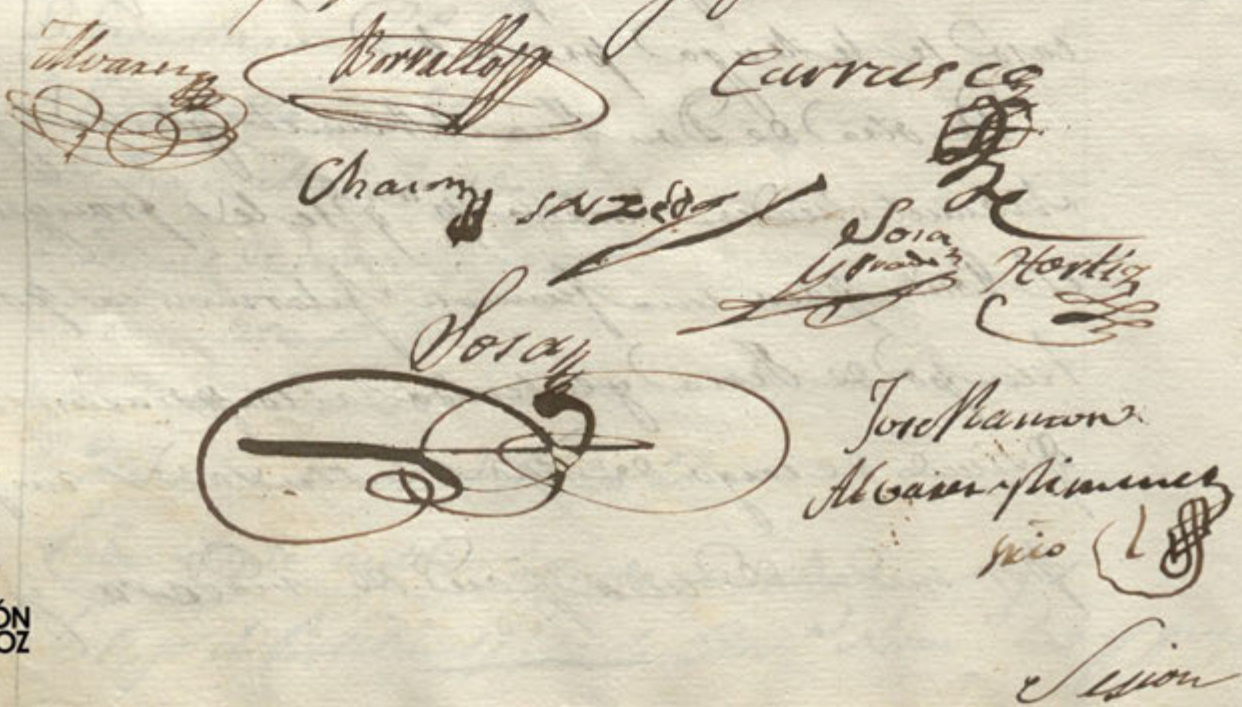 Alvarez
Borrallo
Carrasco
Chacon
Sosa
y Prado
Hortiz
Sosa
Jose Ramon
Alvarez Ximenez
srio
Sesion
ÓN
OZ